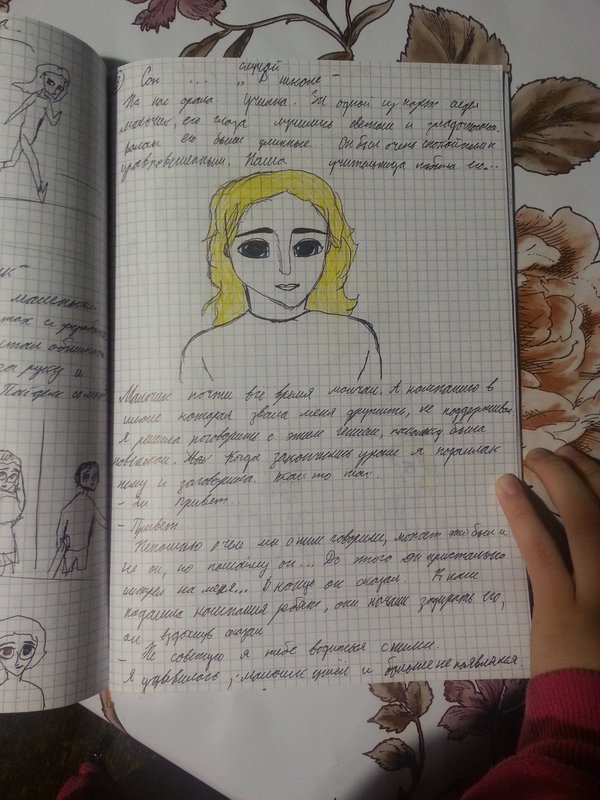 Сон ... „ случай В школе "
На нас орала Училка. За одной из парт сидел
мальчик, его глаза лучились светом и
волосы его были длинные. Он был очень спокойным и
уравновешенным. Наша учительница любила его...
Мальчик почти всё время молчал. А компанию в
школе которая звала меня дружить, не поддерживал
Я решила поговорить с этим гением, поскольку была
новенькой. Когда закончились уроки я подошла к
нему и заговорила. Как-то так:
- Привет.
- Привет
Непомню о чем мы с ним говорили, может это был и
не он, но помойму он... До этого он пристально
смотрел на меня... В конце он сказал К нам
подошла компания ребят, они начали задирать его,
он, вздохнув сказал
- Не советую я тебе водиться с ними.
Я удивилась, мальчик ушёл и больше не появлялся.
маленький
за руку и
Пойдём со мной